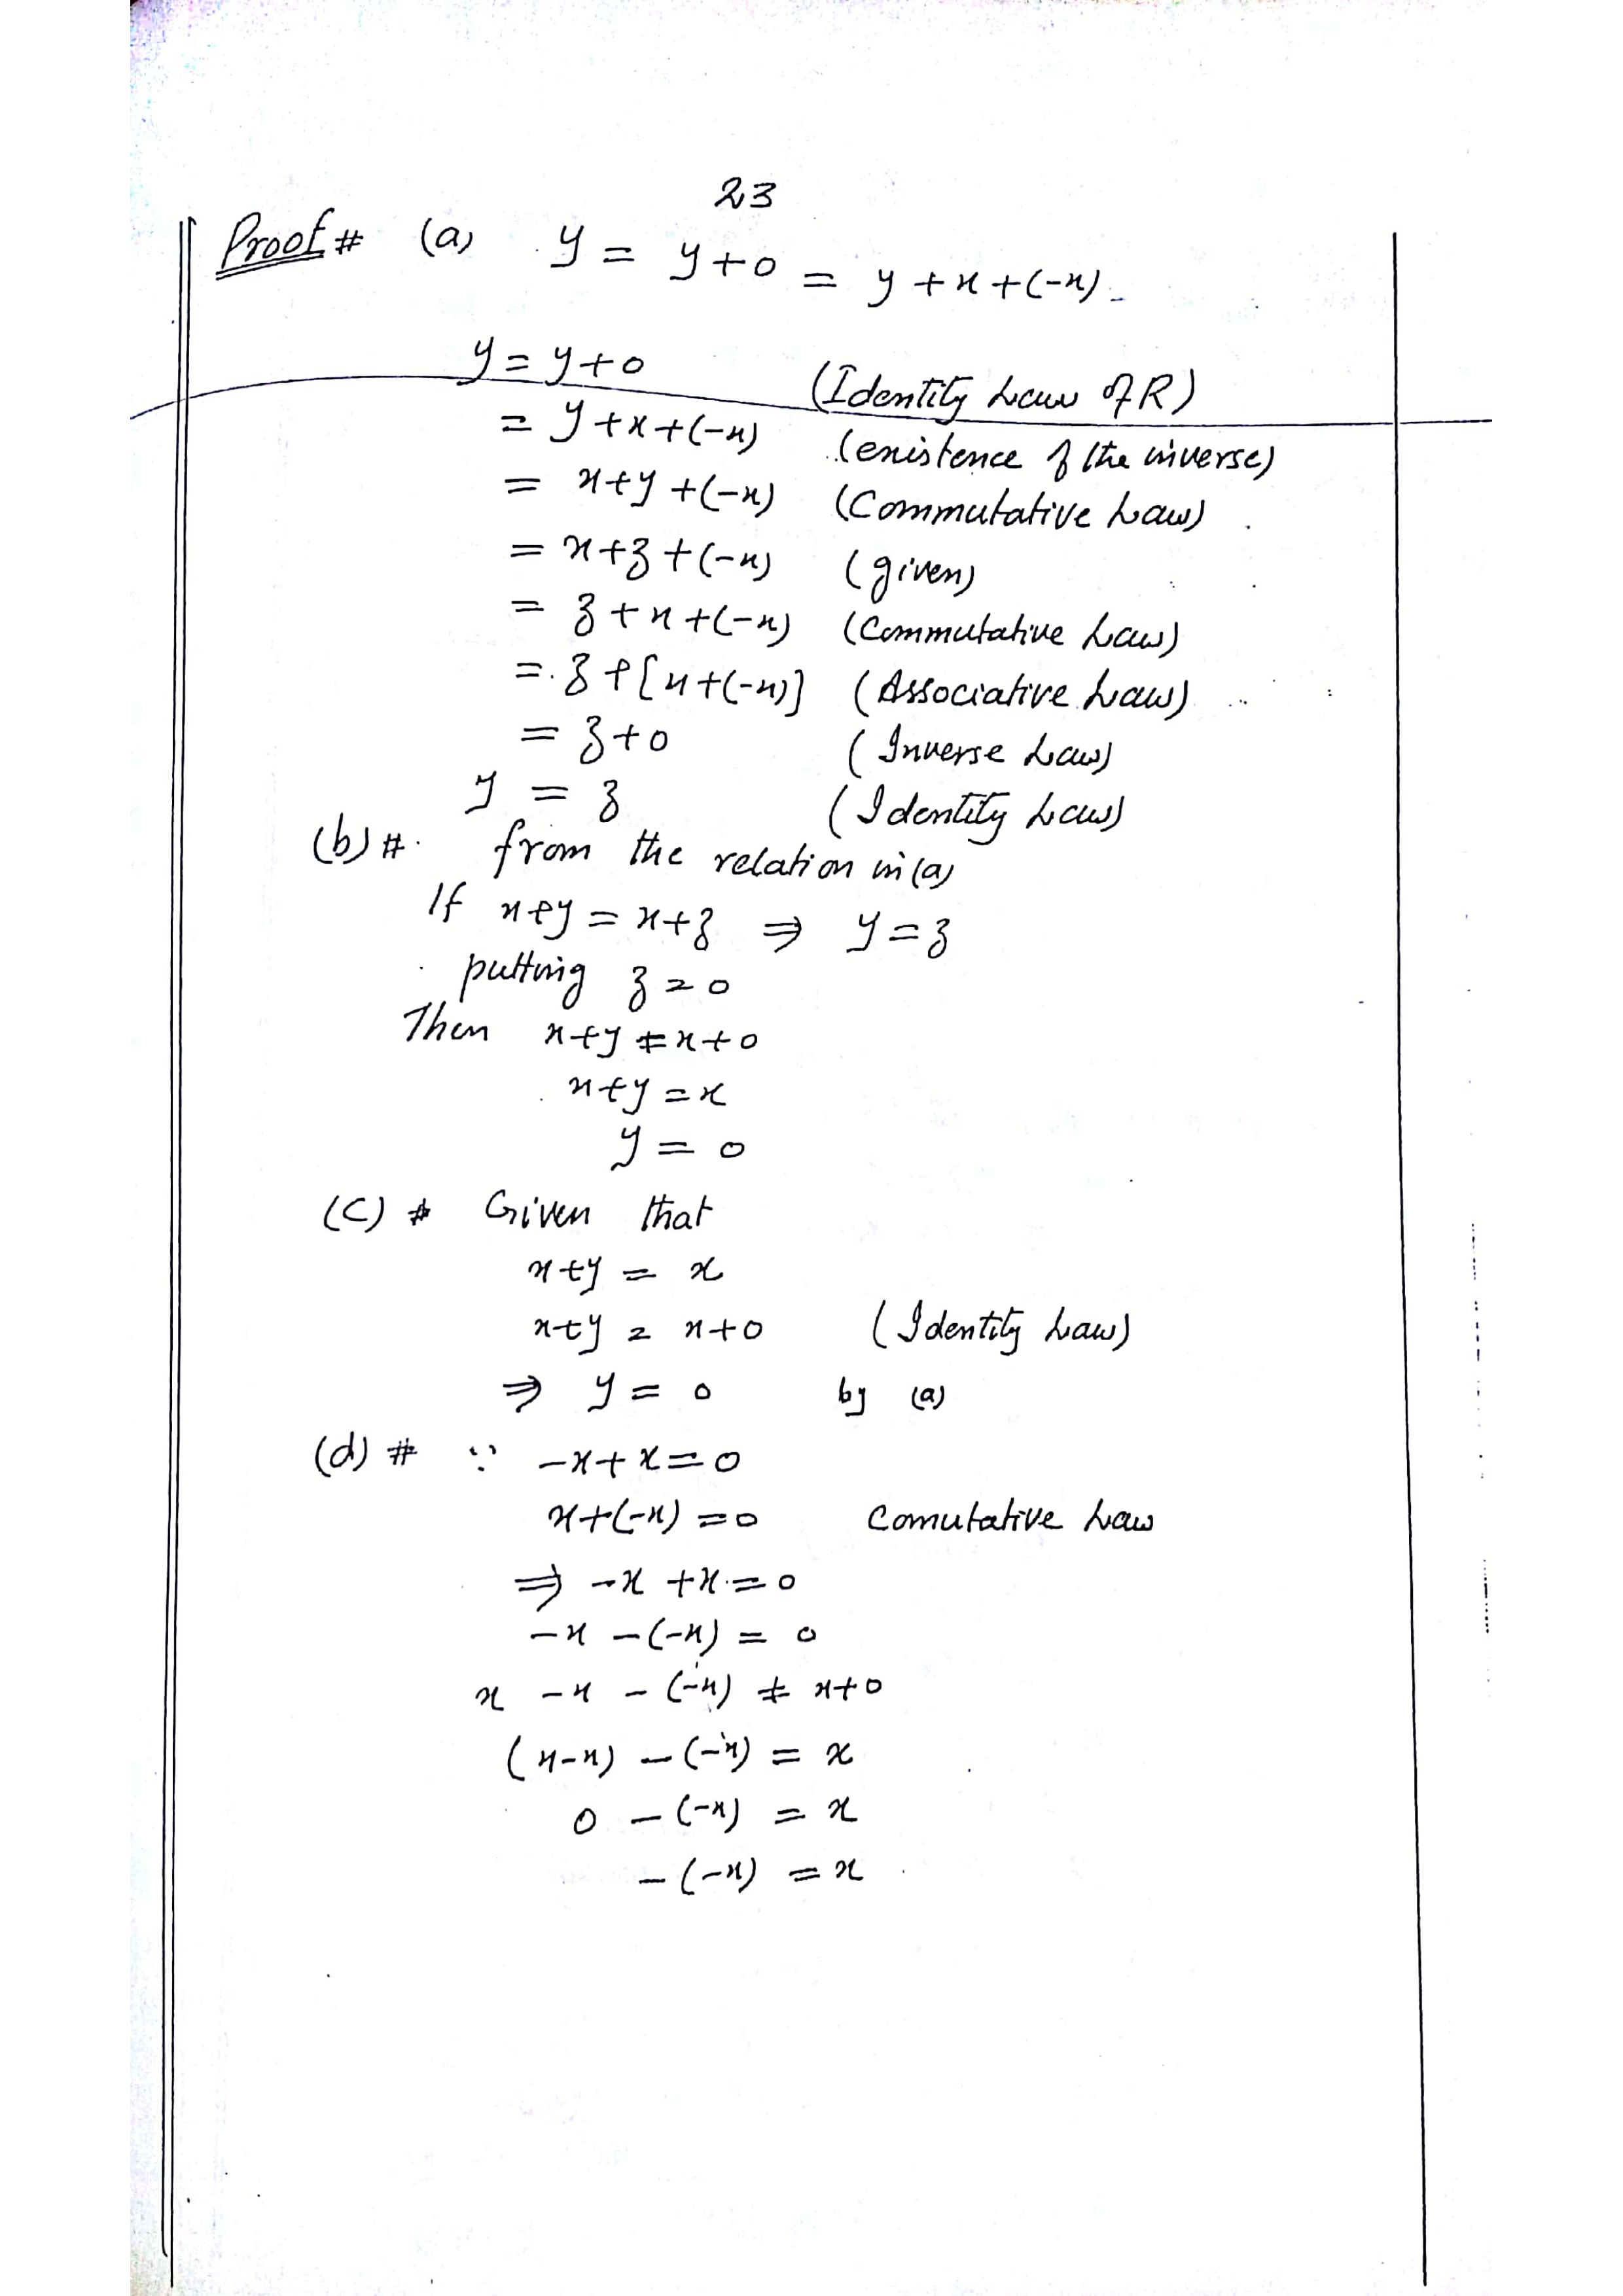 23
Proof # (a) y = y+0 = y+x+(-x)
y = y+0 (Identity Law of R)
= y+x+(-x) (existence of the inverse)
= x+y+(-x) (Commutative Law)
= x+z+(-x) (given)
= z+x+(-x) (Commutative Law)
= z+[x+(-x)] (Associative Law)
= z+0 (Inverse Law)
y = z (Identity Law)
(b) # from the relation in (a)
If x+y = x+z ⇒ y = z
putting z = 0
Then x+y ≠ x+0
x+y = x
y = 0
(C) # Given that
x+y = x
x+y = x+0 (Identity Law)
⇒ y = 0 by (a)
(d) # ∵ -x+x=0
x+(-x) =0 Comutative Law
⇒ -x+x=0
-x-(-x) = 0
x -x - (-x) ≠ x+0
(x-x) - (-x) = x
0 - (-x) = x
-(-x) = x